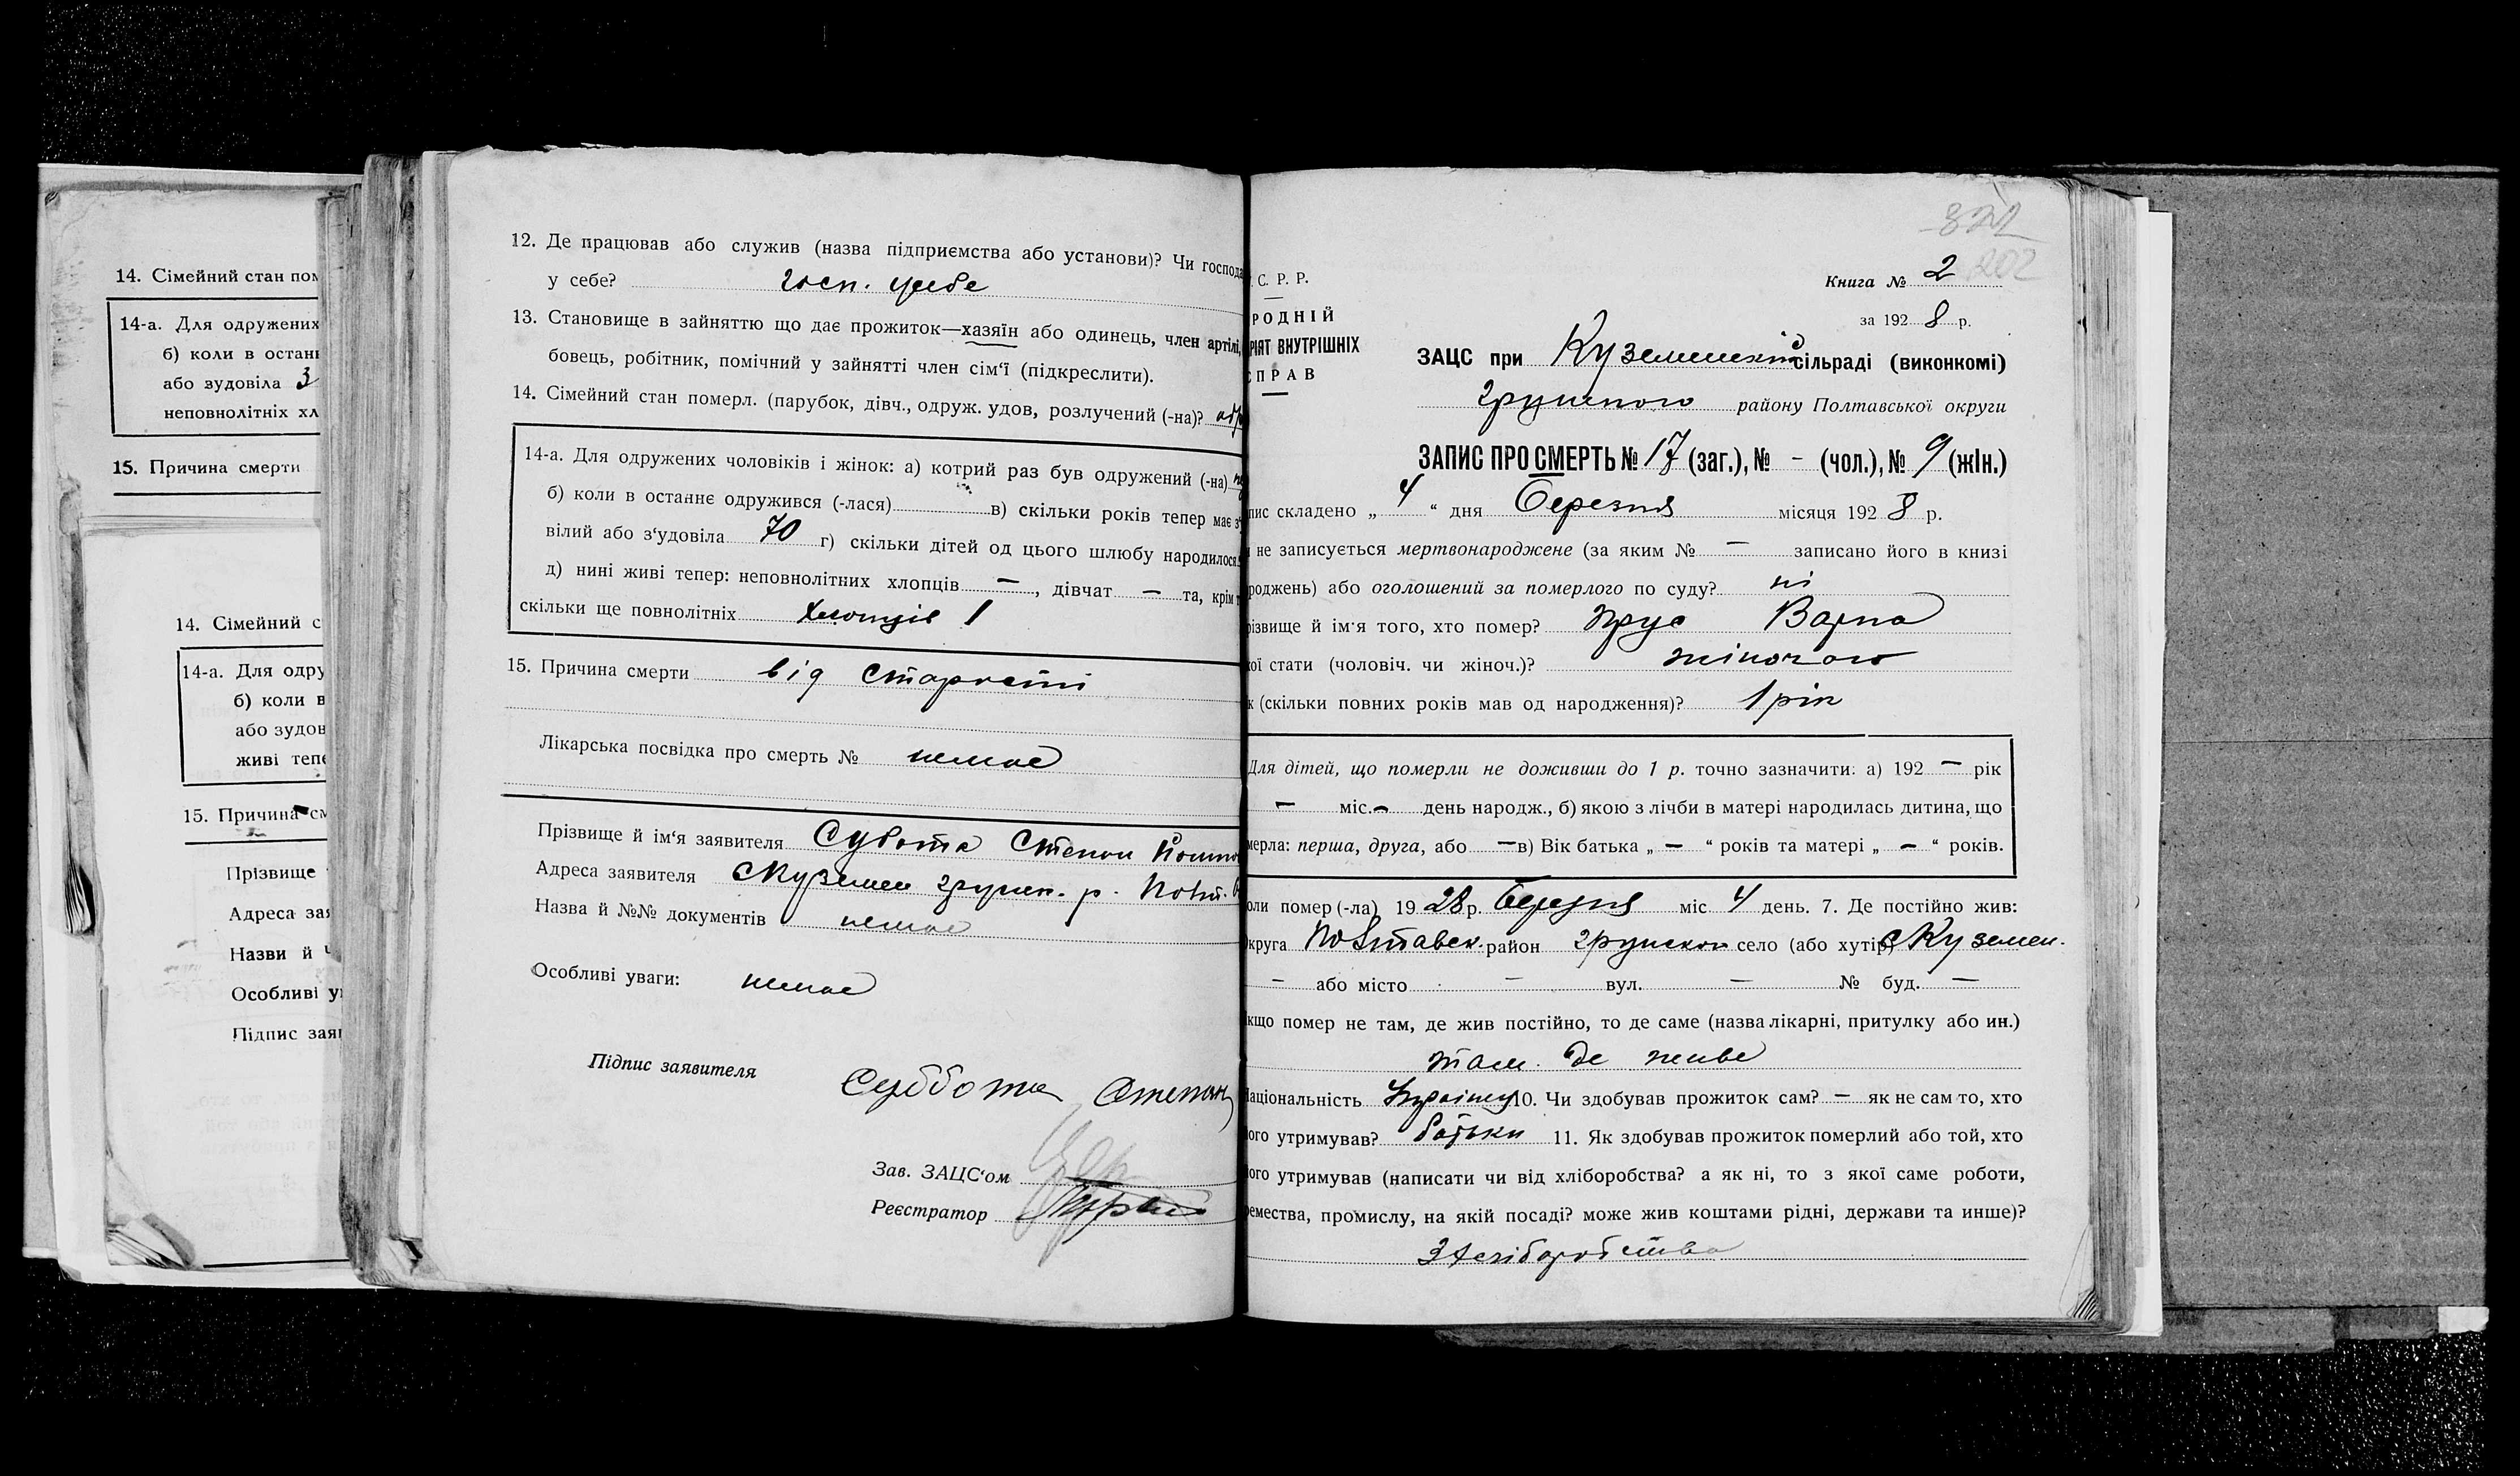 14. Сімейний стан пом
14-а. Для одружених
б) коли в остан
або зудовіла 3
неповнолітніх хл
15. Причина смерти
14. Сімейний с
14-а. Для одру
б) коли в
або зудов
живі тепе
15. Причина см
Прізвище
Адреса зая
Назви й
Особливі у
Підпис заяв
12. Де працював або служив (назва підприємства або установи)? Чи господа
у себе? госп. у себе
13. Становище в зайняттю що дає прожиток—хазяїн або одинець, член артілі,
бовець, робітник, помічний у зайнятті член сім'ї (підкреслити).
14. Сімейний стан померл. (парубок, дівч., одруж. удов, розлучений (-на)?
14-а. Для одружених чоловіків і жінок: а) котрий раз був одружений (-на)
б) коли в останнє одружився (-лася) в) скільки років тепер має з'у
вілий або з'удовіла 70 г) скільки дітей од цього шлюбу народилося
д) нині живі тепер: неповнолітних хлопців —, дівчат — та, крім т
скільки ще повнолітніх хлопців 1
15. Причина смерти від старости
Лікарська посвідка про смерть № немає
Прізвище й ім'я заявителя Субота Степан
Адреса заявителя с Куземен грунск. р. Полт.
Назва й №№ документів немає
Особливі уваги: немає
Підпис заявителя Суббота Степан
Зав. ЗАЦС'ом
Реєстратор
322
202
Книга № 2
за 1928 р.
С. Р. Р.
РОДНІЙ
РІЯТ ВНУТРІШНІХ
СПРАВ
ЗАЦС при Куземенскій сільраді (виконкомі)
грунского району Полтавської округи
ЗАПИС ПРО СМЕРТЬ № 17 (заг.), № - (чол.), № 9 (жін.)
пис складено „4“ дня березня місяця 1928 р.
не записується мертвонароджене (за яким № — записано його в книзі
роджень) або оголошений за померлого по суду? ні
різвище й ім'я того, хто помер? Прус Варка
ої стати (чоловіч. чи жіноч.)? жіночого
к (скільки повних років мав од народження)? 1 рік
Для дітей, що померли не доживши до 1 р. точно зазначити: а) 192 — рік
— міс. — день народж., б) якою з лічби в матері народилась дитина, що
мерла: перша, друга, або — в) Вік батька „—“ років та матері „—“ років.
оли помер (-ла) 1928 р. березня міс 4 день. 7. Де постійно жив:
круга Полтавск. район грунском село (або хутір) с Куземен.
— або місто — вул. — № буд. —
кщо помер не там, де жив постійно, то де саме (назва лікарні, притулку або ин.)
там де живе
аціональність 10. Чи здобував прожиток сам? — як не сам то, хто
ого утримував? батьки 11. Як здобував прожиток померлий або той, хто
ого утримував (написати чи від хліборобства? а як ні, то з якої саме роботи,
ремества, промислу, на якій посаді? може жив коштами рідні, держави та инше)?
З хліборобства